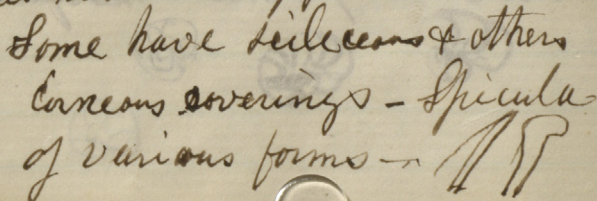 Some have sileceous & others
Corneous coverings – Spicula
of various forms –